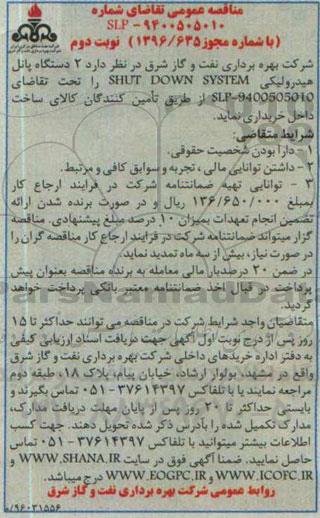 مناقصه عمومی تقاضای شماره
SLP -۹۴۰۰۵۰۵۰۱۰
(با شماره مجوز ۱۳۹۶/۶۳۵) نوبت دوم
شرکت بهره برداری نفت و گاز شرق در نظر دارد ۲ دستگاه پانل
هیدرولیکی SHUT DOWN SYSTEM را تحت تقاضای
SLP-9400505010 از طریق تأمین کنندگان کالای ساخت
داخل خریداری نماید.
شرایط متقاضی:
۱ - دارا بودن شخصیت حقوقی.
۲ - داشتن توانایی مالی ، تجربه و سوابق کافی و مرتبط.
۳ - توانایی تهیه ضمانتنامه شرکت در فرایند ارجاع کار
بمبلغ ۱۳۶/۶۵۰/۰۰۰ ریال و در صورت برنده شدن ارائه
تضمین انجام تعهدات بمیزان ۱۰ درصد مبلغ پیشنهادی. مناقصه
گزار میتواند ضمانتنامه شرکت در فرایند ارجاع کار مناقصه گران را
در صورت نیاز، بیش از سه ماه تمدید نماید.
در ضمن ۲۰ درصد ریالی معامله به برنده مناقصه بعنوان پیش
پرداخت در قبال اخذ ضمانتنامه معتبر بانکی پرداخت خواهد
گردید.
متقاضیان واجد شرایط شرکت در مناقصه می توانند حداکثر تا ۱۵
روز پس از درج نوبت اول آگهی جهت دریافت اسناد ارزیابی کیفی
به دفتر اداره خریدهای داخلی شرکت بهره برداری نفت و گاز شرق
واقع در مشهد، بولوار ارشاد، خیابان پیام، پلاک ۱۸، طبقه دوم
مراجعه نمایند یا با تلفاکس ۳۷۶۱۴۳۹۷-۰۵۱ تماس بگیرند و
بایستی حداکثر تا ۲۰ روز پس از پایان مهلت دریافت مدارک،
مدارک تکمیل شده را بآدرس ذکر شده تحویل دهند. جهت کسب
اطلاعات بیشتر میتوانید با تلفاکس ۳۷۶۱۴۳۹۷-۰۵۱ تماس
حاصل نمایید. ضمنا آگهی فوق در سایت WWW.SHANA.IR و
WWW.ICOFC.IR و WWW.EOGPC.IR درج میباشد.
روابط عمومی شرکت بهره برداری نفت و گاز شرق
۹۶۰۳۱۵۵۶/و